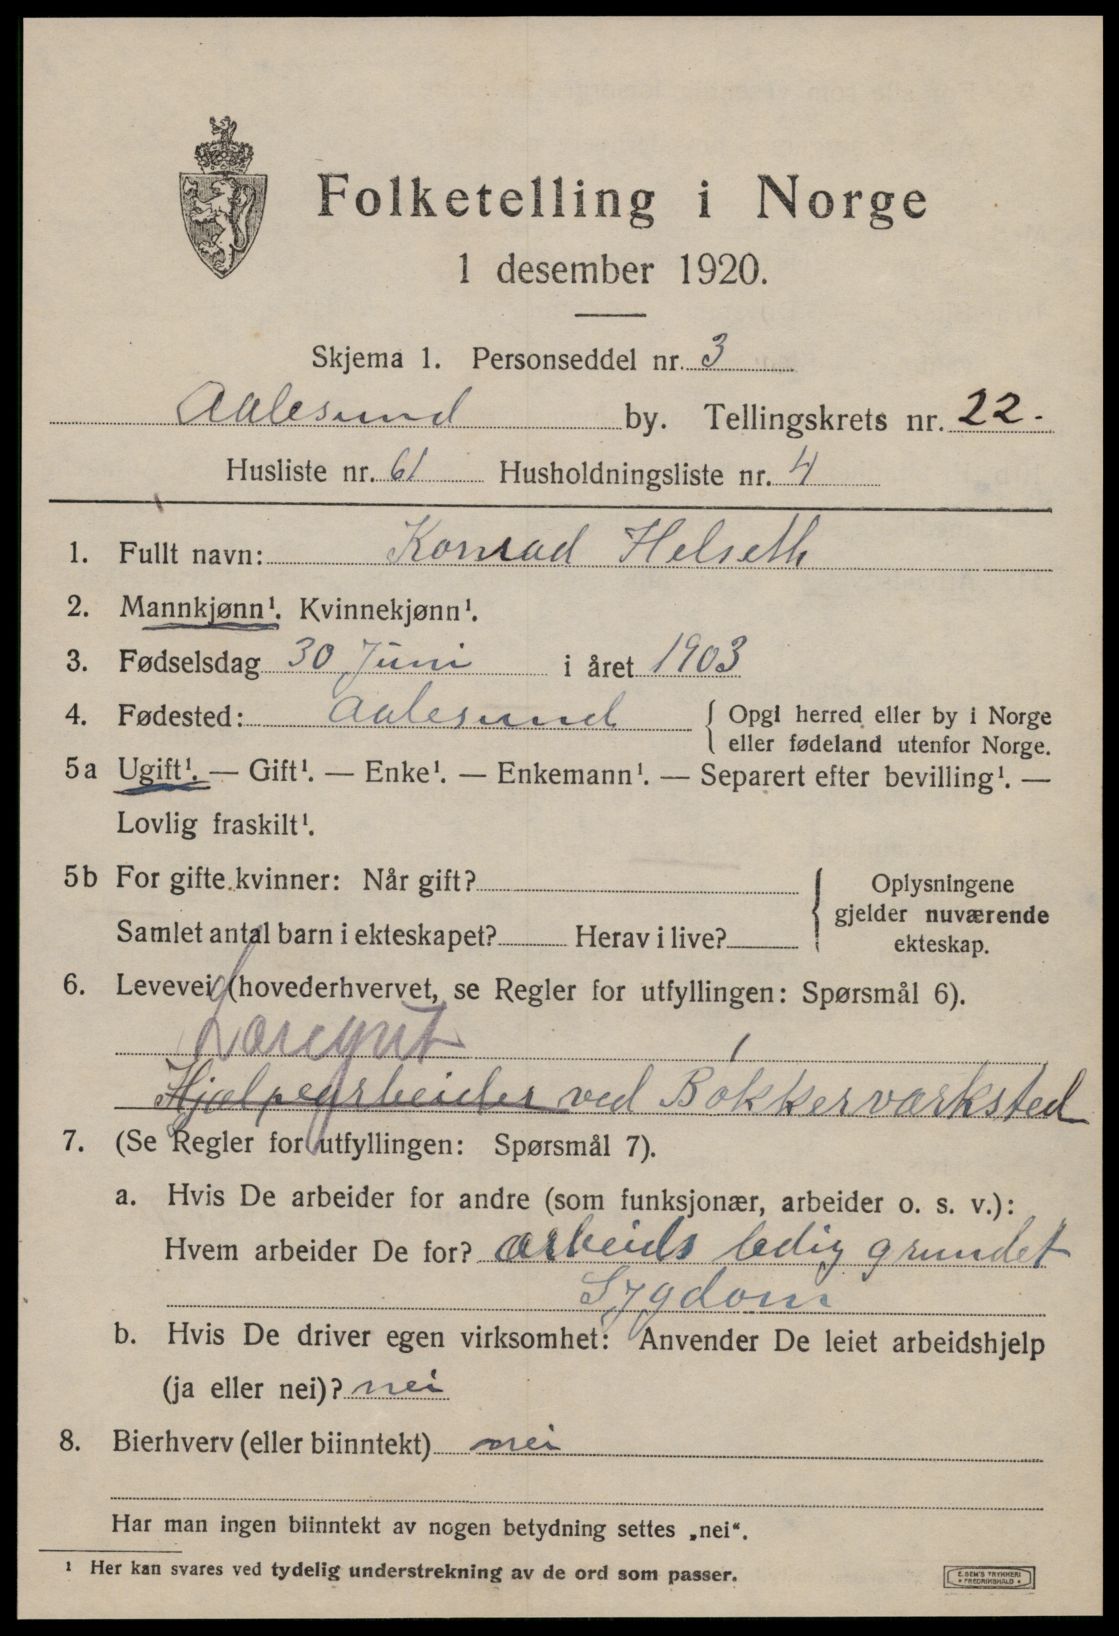 Folketelling i Norge
1 desember 1920.
Skjema 1. Personseddel nr. 3
Aalesund by. Tellingskrets nr. 22.
Husliste nr. 61 Husholdningsliste nr. 4
1. Fullt navn: Konrad Helseth
2. Mannkjønn¹. Kvinnekjønn¹.
3. Fødselsdag 30 Juni i året 1903
4. Fødested: Aalesund { Opgi herred eller by i Norge
eller fødeland utenfor Norge.
5a Ugift¹. — Gift¹. — Enke¹. — Enkemann¹. — Separert efter bevilling¹. —
Lovlig fraskilt¹.
5b For gifte kvinner: Når gift? { Oplysningene
gjelder nuværende
Samlet antal barn i ekteskapet? Herav i live?
ekteskap.
6. Levevei (hovederhvervet, se Regler for utfyllingen: Spørsmål 6).
Læregut
Hjælpearbeider ved Bøkkerværksted
7. (Se Regler for utfyllingen: Spørsmål 7).
a. Hvis De arbeider for andre (som funksjonær, arbeider o. s. v.):
Hvem arbeider De for? arbeids ledig grundet
Sygdom
b. Hvis De driver egen virksomhet: Anvender De leiet arbeidshjelp
(ja eller nei)? nei
8. Bierhverv (eller biinntekt) nei
Har man ingen biinntekt av nogen betydning settes „nei“.
¹ Her kan svares ved tydelig understrekning av de ord som passer.
E. SEM'S TRYKKERI
• FREDRIKSHALD •